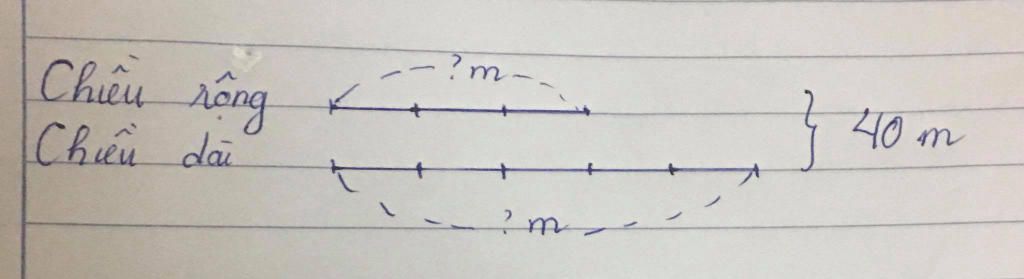 ? m
Chiều rộng
40 m
Chiều dài
? m